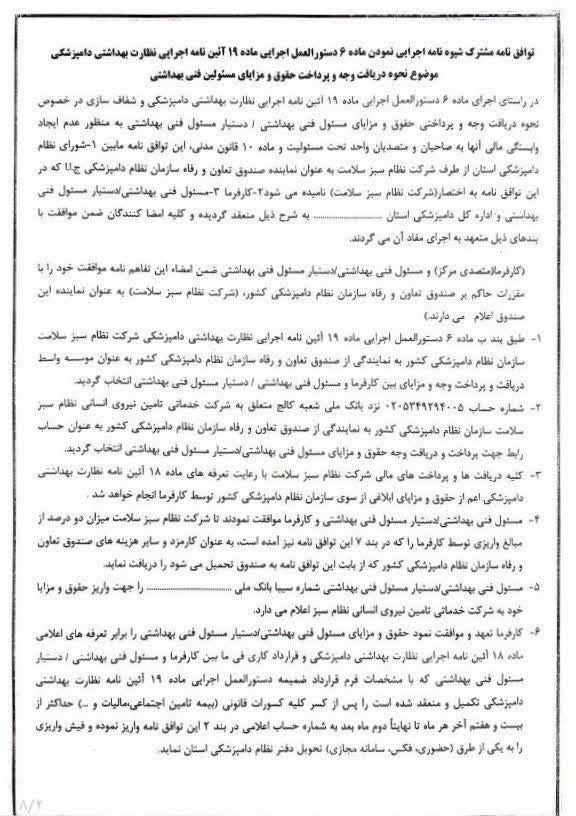 توافق نامه مشترک شیوه نامه اجرایی نمودن ماده ۶ دستورالعمل اجرایی ماده ۱۹ آئین نامه اجرایی نظارت بهداشتی دامپزشکی
موضوع نحوه دریافت وجه و پرداخت حقوق و مزایای مسئولین فنی بهداشتی
در راستای اجرای ماده ۶ دستورالعمل اجرایی ماده ۱۹ آئین نامه اجرایی نظارت بهداشتی دامپزشکی و شفاف سازی در خصوص
نحوه دریافت وجه و پرداختی حقوق و مزایای مسئول فنی بهداشتی / دستیار مسئول فنی بهداشتی به منظور عدم ایجاد
وابستگی مالی آنها به صاحبان و متصدیان واحد تحت مسئولیت و ماده ۱۰ قانون مدنی، این توافق نامه مابین ۱-شورای نظام
دامپزشکی استان از طرف شرکت نظام سبز سلامت به عنوان نماینده صندوق تعاون و رفاه سازمان نظام دامپزشکی ج.ا.ا که در
این توافق نامه به اختصار(شرکت نظام سبز سلامت) نامیده می شود۲-کارفرما ۳-مسئول فنی بهداشتی/دستیار مسئول فنی
بهداشتی و اداره کل دامپزشکی استان .................... به شرح ذیل منعقد گردیده و کلیه امضا کنندگان ضمن موافقت با
بندهای ذیل متعهد به اجرای مفاد آن می گردند.
(کارفرما(متصدی مرکز) و مسئول فنی بهداشتی/دستیار مسئول فنی بهداشتی ضمن امضاء این تفاهم نامه موافقت خود را با
مقررات حاکم بر صندوق تعاون و رفاه سازمان نظام دامپزشکی کشور، (شرکت نظام سبز سلامت) به عنوان نماینده این
صندوق اعلام می دارند.)
۱- طبق بند ب ماده ۶ دستورالعمل اجرایی ماده ۱۹ آئین نامه اجرایی نظارت بهداشتی دامپزشکی شرکت نظام سبز سلامت
سازمان نظام دامپزشکی کشور به نمایندگی از صندوق تعاون و رفاه سازمان نظام دامپزشکی کشور به عنوان موسسه واسط
دریافت و پرداخت وجه و مزایای بین کارفرما و مسئول فنی بهداشتی / دستیار مسئول فنی بهداشتی انتخاب گردید.
۲- شماره حساب ۰۲۰۵۳۴۹۲۹۴۰۰۵ نزد بانک ملی شعبه کالج متعلق به شرکت خدماتی تامین نیروی انسانی نظام سبز
سلامت سازمان نظام دامپزشکی کشور به نمایندگی از صندوق تعاون و رفاه سازمان نظام دامپزشکی کشور به عنوان حساب
رابط جهت پرداخت و دریافت وجه حقوق و مزایای مسئول فنی بهداشتی/دستیار مسئول فنی بهداشتی انتخاب گردید.
۳- کلیه دریافت ها و پرداخت های مالی شرکت نظام سبز سلامت با رعایت تعرفه های ماده ۱۸ آئین نامه نظارت بهداشتی
دامپزشکی اعم از حقوق و مزایای ابلاغی از سوی سازمان نظام دامپزشکی کشور توسط کارفرما انجام خواهد شد .
۴- مسئول فنی بهداشتی/دستیار مسئول فنی بهداشتی و کارفرما موافقت نمودند تا شرکت نظام سبز سلامت میزان دو درصد از
مبالغ واریزی توسط کارفرما را که در بند ۷ این توافق نامه نیز آمده است، به عنوان کارمزد و سایر هزینه های صندوق تعاون
و رفاه سازمان نظام دامپزشکی کشور که از بابت این توافق نامه به صندوق تحمیل می شود را دریافت نماید.
۵- مسئول فنی بهداشتی/دستیار مسئول فنی بهداشتی شماره سیبا بانک ملی .......................... را جهت واریز حقوق و مزایا
خود به شرکت خدماتی تامین نیروی انسانی نظام سبز اعلام می دارد.
۶- کارفرما تعهد و موافقت نمود حقوق و مزایای مسئول فنی بهداشتی/دستیار مسئول فنی بهداشتی را برابر تعرفه های اعلامی
ماده ۱۸ آئین نامه اجرایی نظارت بهداشتی دامپزشکی و قرارداد کاری فی ما بین کارفرما و مسئول فنی بهداشتی / دستیار
مسئول فنی بهداشتی که با مشخصات فرم قرارداد ضمیمه دستورالعمل اجرایی ماده ۱۹ آئین نامه نظارت بهداشتی
دامپزشکی تکمیل و منعقد شده است را پس از کسر کلیه کسورات قانونی (بیمه تامین اجتماعی،مالیات و ...) حداکثر از
بیست و هفتم آخر هر ماه تا نهایتاً دوم ماه بعد به شماره حساب اعلامی در بند ۲ این توافق نامه واریز نموده و فیش واریزی
را به یکی از طرق (حضوری، فکس، سامانه مجازی) تحویل دفتر نظام دامپزشکی استان نماید.
۸/۲